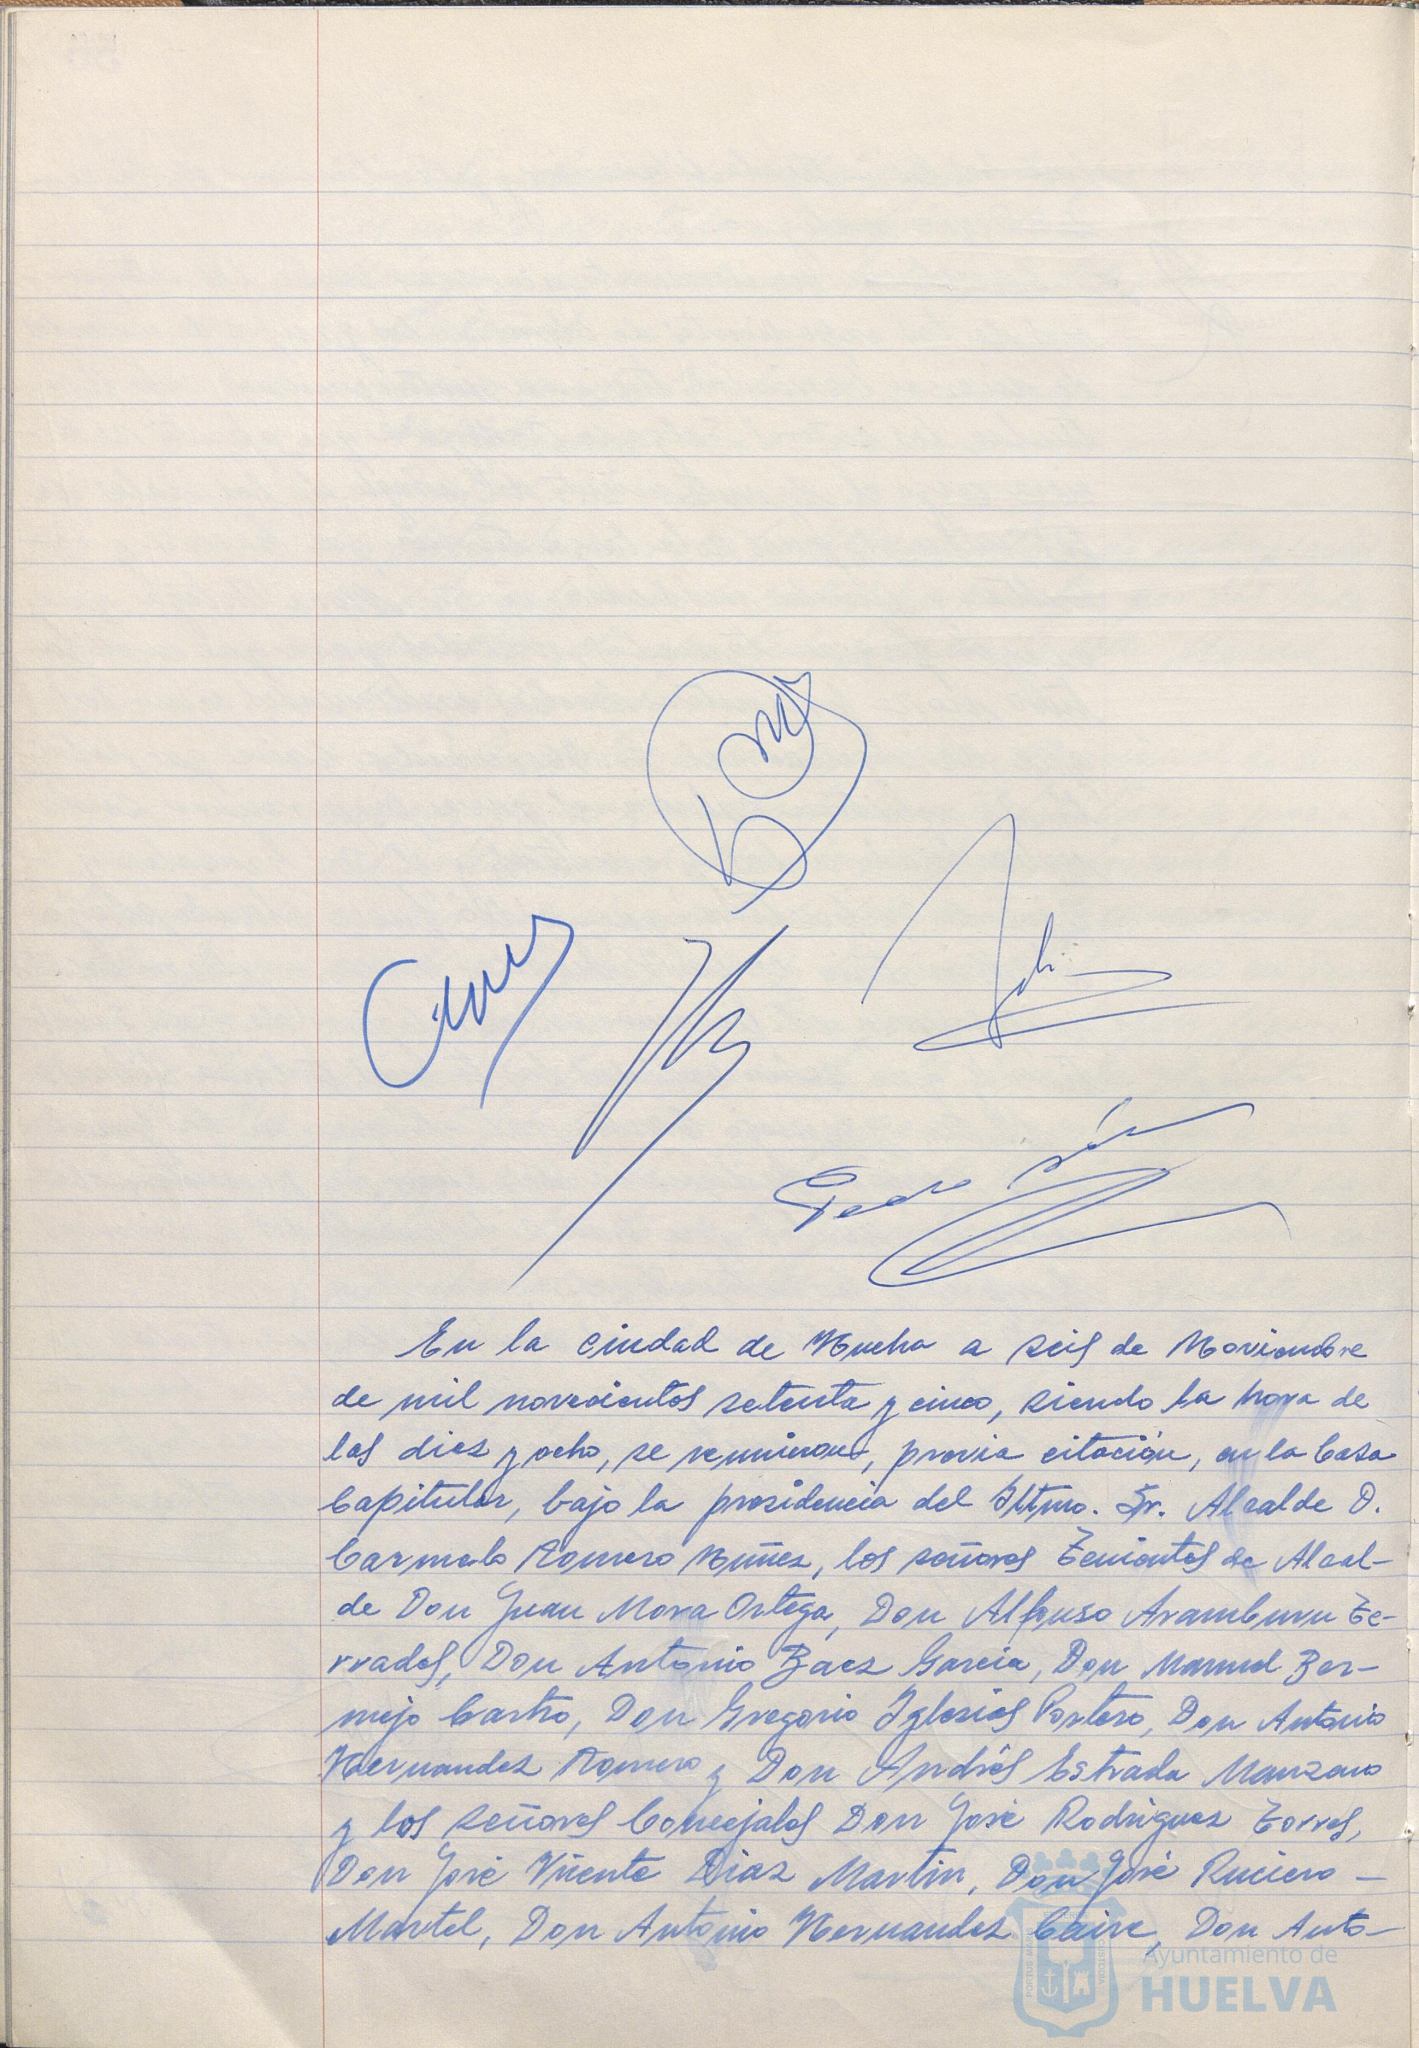 Pedro
En la ciudad de Huelva a seis de Noviembre
de mil novecientos setenta y cinco, siendo la hora de
las diez y ocho, se reunieron, previa citación, en la Casa
Capitular, bajo la presidencia del Iltmo. Sr. Alcalde D.
Carmelo Romero Núñez, los señores Tenientes de Alcal-
de Don Juan Mora Ortega, Don Alfonso Aramburu Te-
rrades, Don Antonio Baez Garcia, Don Manuel Ber-
mejo Castro, Don Gregorio Iglesias Portero, Don Antonio
Hernandez Romero y Don Andrés Estrada Manzano
y los señores Concejales Don José Rodriguez Torres,
Don José Vicente Diaz Martin, Don José Ruciero
Martel, Don Antonio Hernandez Caire, Don Anto-
Ayuntamiento de
HUELVA